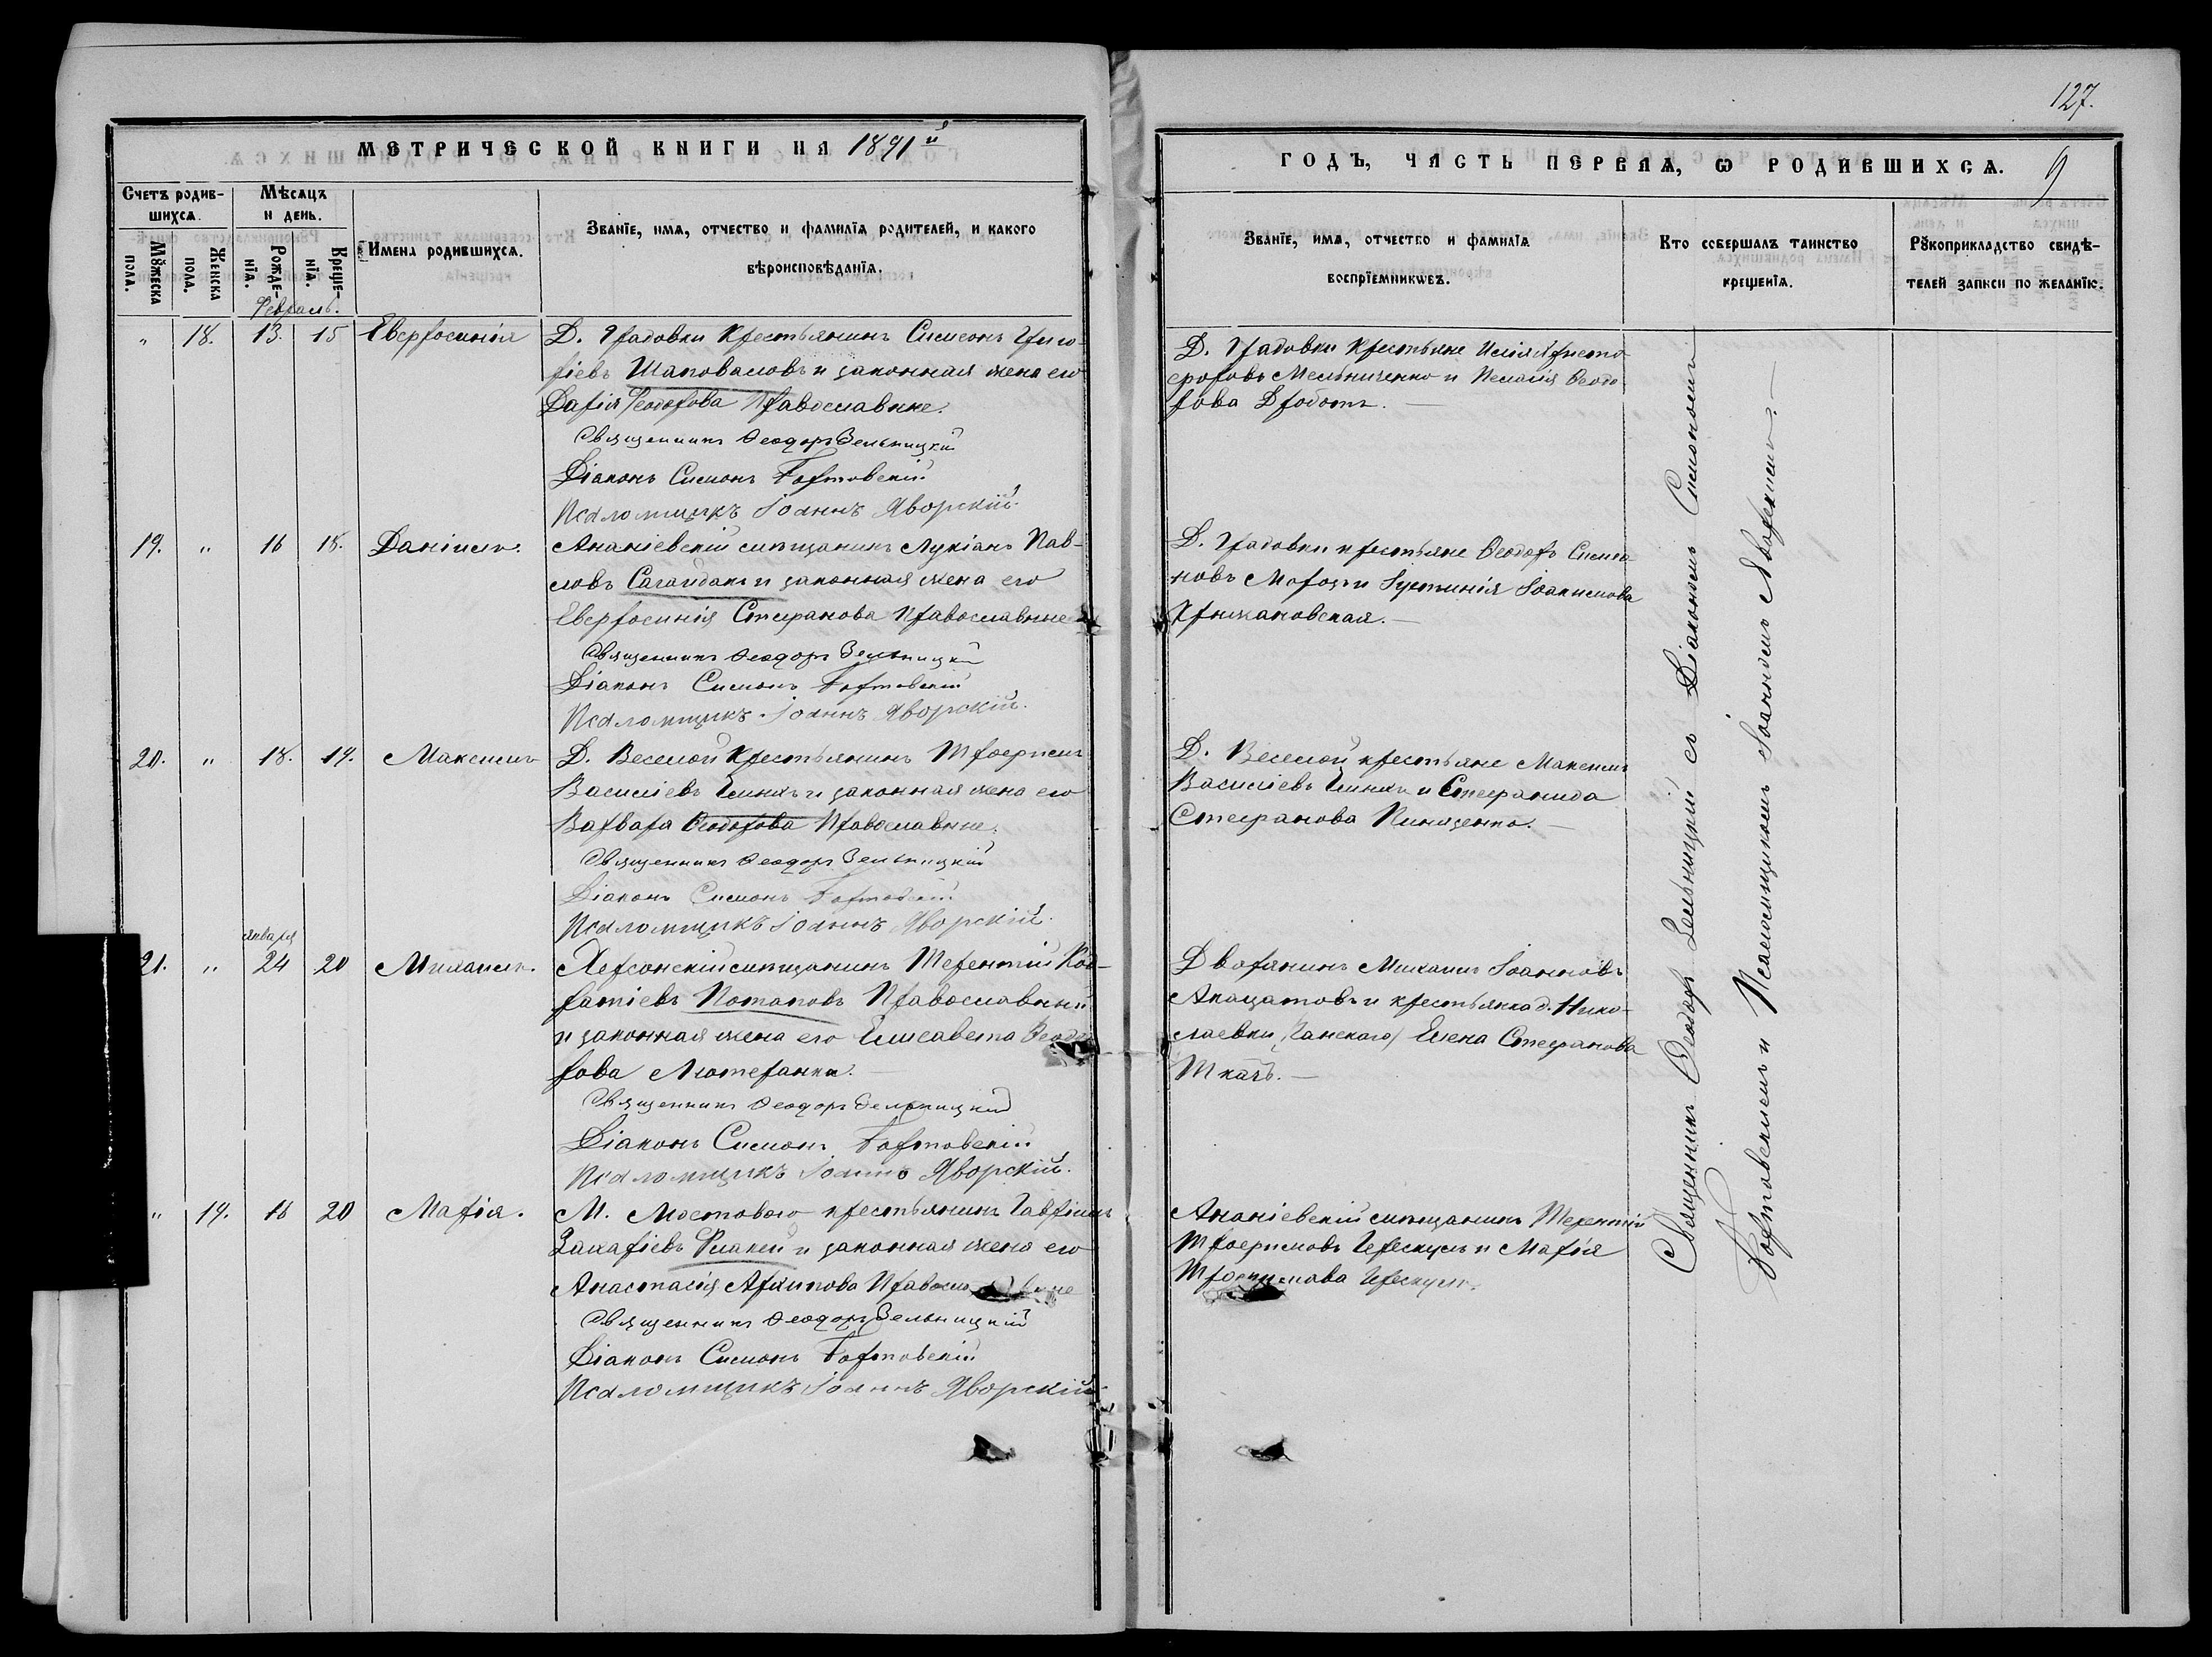 127.
МЕТРИЧЕСКОЙ КНИГИ НА 1891й
ГОДЪ, ЧАСТЬ ПЕРВАѦ, Ѡ РОДИВШИХСѦ. 9
Счетъ родив-
шихсѧ.
Мꙋжеска пола.
Женска пола.
Мѣсѧцъ
и день.
Рожде-
нїѧ.
Креще-
нїѧ.
Имена родившихсѧ.
Званїе, имѧ, отчество и фамилїѧ родителей, и какого
вѣроисповѣданїѧ.
Званїе, имѧ, отчество и фамилїѧ
воспрїемникѡвъ.
Кто совершалъ таинство
крещенїѧ.
Рꙋкоприкладство свидѣ-
телей записи по желанїю.
Февраль.
" 18. 13. 15 Евфросинія
Д. Градовки Крестьянинъ Симеонъ Григо-
ріевъ Шаповаловъ и законная жена его
Дарія Ѳеодорова Православные.
Священникъ Ѳеодоръ Зельницкій
Діаконъ Симонъ Бортовскій
Псаломщикъ Іоаннъ Яворскій.
Д. Градовки Крестьяне Илія Христо-
форовъ Мельниченко и Пелагія Ѳеодо-
рова Дроботъ. —
19. " 16 18. Даніилъ.
Ананіевскій мѣщанинъ Лукіанъ Пав-
ловъ Сагайдакъ и законная жена его
Евфросинія Стефанова Православные
Священникъ Ѳеодоръ Зельницкій
Діаконъ Симонъ Бортовскій
Псаломщикъ Іоаннъ Яворскій.
Д. Градовки крестьяне Ѳеодоръ Симео-
новъ Морозъ и Іустинія Іоакимова
Крыжановская. —
20. " 18. 19. Максимъ
Д. Веселой Крестьянинъ Трофимъ
Василіевъ и законная жена его
Варвара Ѳеодорова Православные.
Священникъ Ѳеодоръ Зельницкій
Діаконъ Симонъ Бортовскій
Псаломщикъ Іоаннъ Яворскій.
Д. Веселой крестьяне Максимъ
Василіевъ и Стефанида
Стефанова —
января
21. " 24 20 Михаилъ.
Херсонскій мѣщанинъ Терентій Код-
ратіевъ Потаповъ Православный
и законная жена его Елисавета Ѳеодо-
рова Лютеранка. —
Священникъ Ѳеодоръ Зельницкій
Діаконъ Симонъ Бортовскій
Псаломщикъ Іоаннъ Яворскій.
Дворянинъ Михаилъ Іоанновъ
Акацатовъ и крестьянка д. Нико-
лаевки (Ганскаго) Елена Стефанова
Ткачъ. —
" 19. 16 20 Марія.
М. Мостового крестьянинъ Гавріилъ
Захаріевъ и законная жена его
Анастасія Архипова Православные
Священникъ Ѳеодоръ Зельницкій
Діаконъ Симонъ Бортовскій
Псаломщикъ Іоаннъ Яворскій
Ананіевскій мѣщанинъ Терентій
Трофимовъ и Марія
Трофимова
Священникъ Ѳеодоръ Зельницкій съ Діакономъ Симономъ
Бортовскимъ и Псаломщикомъ Іоанномъ Яворскимъ. —